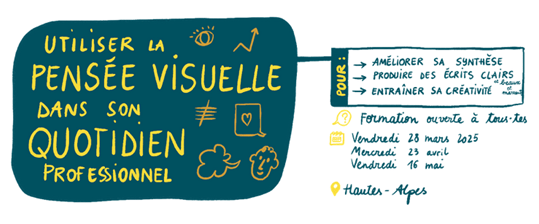 UTILISER LA
PENSÉE VISUELLE
DANS SON
QUOTIDIEN
PROFESSIONNEL
POUR :
→ AMÉLIORER SA SYNTHÈSE
→ PRODUIRE DES ÉCRITS CLAIRS
→ ENTRAÎNER SA CRÉATIVITÉ
Formation ouverte à tous·tes
Vendredi 28 mars 2025
Mercredi 23 avril
Vendredi 16 mai
Hautes-Alpes